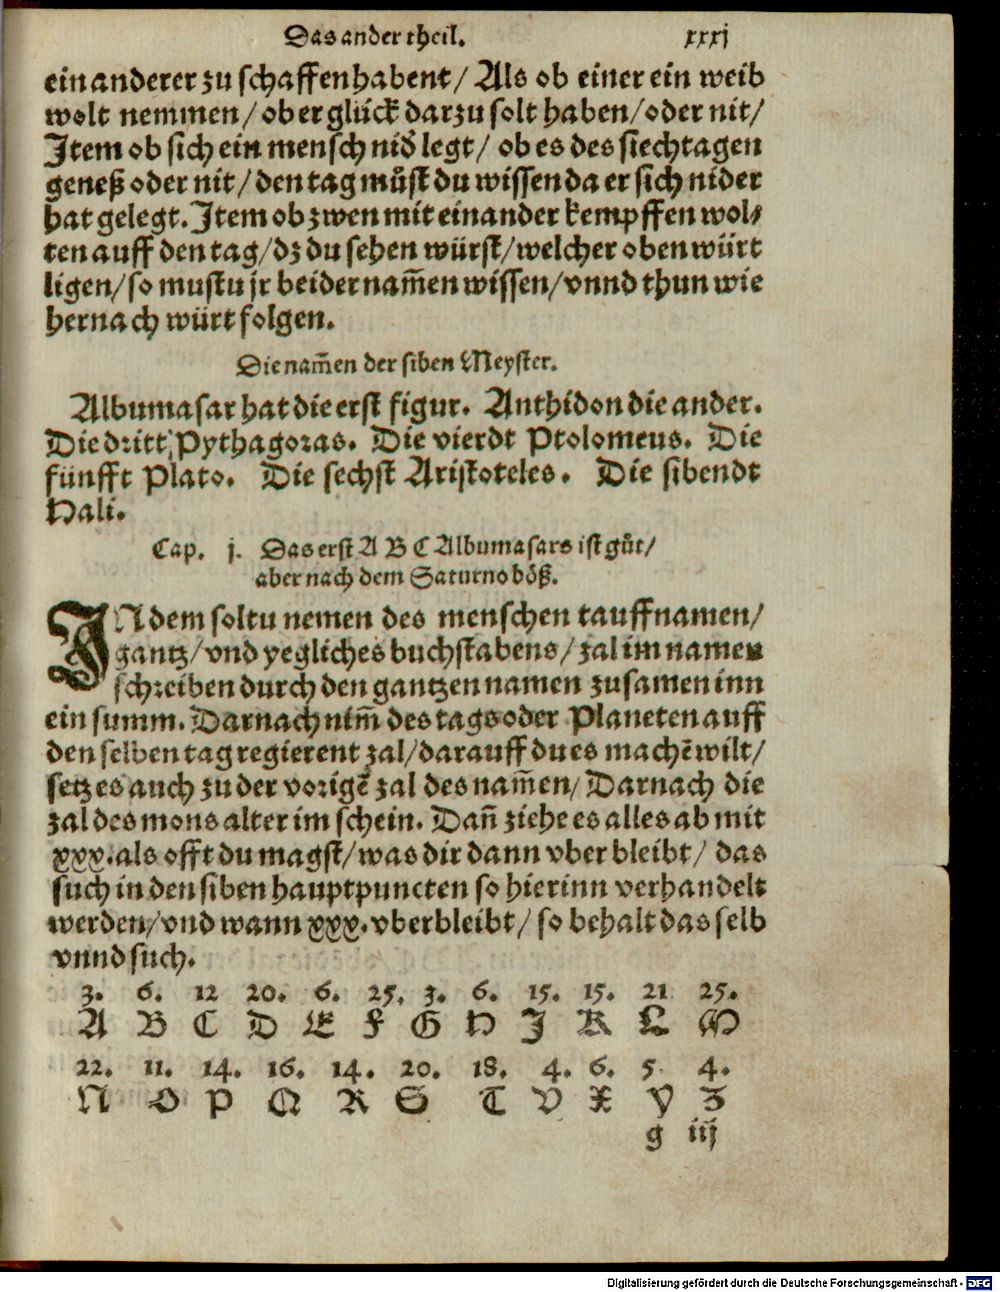 Das ander theil. xxxj
ein anderer zu schaffen habent/ Als ob einer ein weib
wolt nemmen/ ob er glück darzu solt haben/ oder nit/
Item ob sich ein mensch nid̕ legt/ ob es des siechtagen
geneß oder nit/ den tag můst du wissen da er sich nider
hat gelegt. Item ob zwen mit einander kempffen wol⸗
ten auff den tag/ dz du sehen würst/ welcher oben würt
ligen/ so mustu jr beider nam̄en wissen/ vnnd thun wie
hernach würt folgen.
Die nam̄en der siben Meyster.
Albumasar hat die erst figur. Anthidon die ander.
Die dritt Pythagoras. Die vierdt Ptolomeus. Die
fünfft Plato. Die sechst Aristoteles. Die sibendt
Hali.
Cap. j. Das erst A B C Albumasars ist gůt/
aber nach dem Saturno böß.
IN dem soltu nemen des menschen tauffnamen/
gantz/ vnd yegliches buchstabens/ zal im namen
schreiben durch den gantzen namen zusamen inn
ein summ. Darnach nim̄ des tags oder Planeten auff
den selben tag regierent zal/ darauff du es machē wilt/
setz es auch zu der vorigē zal des nam̄en/ Darnach die
zal des mons alter im schein. Dañ ziehe es alles ab mit
xxx. als offt du magst/ was dir dann vber bleibt/ das
such in den siben hauptpuncten so hierinn verhandelt
werden/ vnd wann xxx. vberbleibt/ so behalt das selb
vnnd such.
3. 6. 12 20. 6. 25. 3. 6. 15. 15. 21 25.
A B C D E F G H I K L M
22. 11. 14. 16. 14. 20. 18. 4. 6. 5 4.
N O P Q R S T V X Y Z
g iij
Digitalisierung gefördert durch die Deutsche Forschungsgemeinschaft - DFG